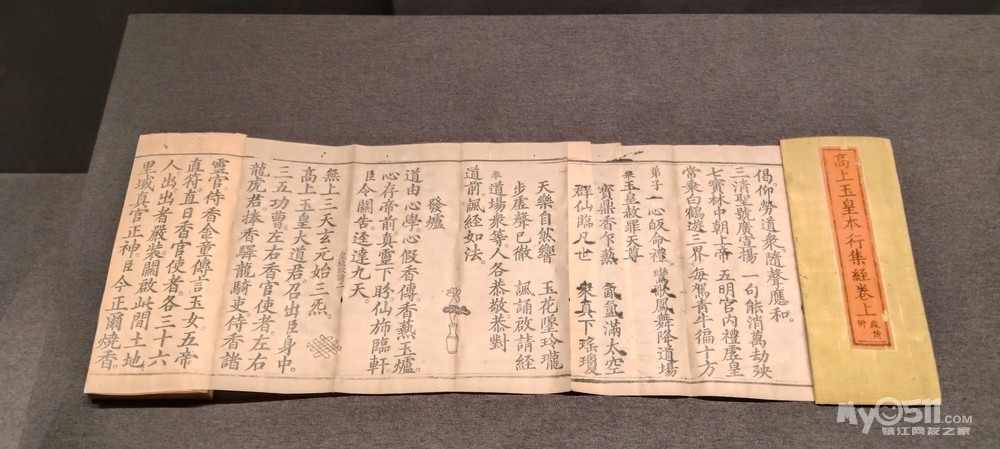 高上玉皇本行集經卷上
啟請附
偈仰勞道衆。隨聲應和。
三清聖號廣宣揚 一句能消萬劫殃
七寳林中朝上帝 五明宮内禮虚皇
常乘白鶴遊三界 每駕青牛徧十方
弟子一心皈命禮 鸞歌鳳舞降道場
玉皇赦罪天尊
寳鼎香乍熱 氤氲滿太空
群仙臨凡世 衆真下瑤瓊
天樂自然響 玉花墜玲瓏
步虚聲巳徹 諷誦啟請經
來道場衆等。人各恭敬恭對
道前諷經如法。
發爐
道由心學。心假香傳。香熱玉爐。
心存帝前。真靈下盻。仙斾臨軒
臣今關告。逕達九天。
無上三天玄元始三炁。
高上玉皇大道君。召出臣身中。
三五功曹。左右香官使者。左右
龍虎君。捧香驛龍騎吏。侍香諸
靈官。侍香金童。傳言玉女。五帝
直符。直日香官使者。各三十六
人出。出者嚴裝。關啟此間土地
里域真官正神。臣今正爾燒香。
MyO511.COM
镇江网友之家